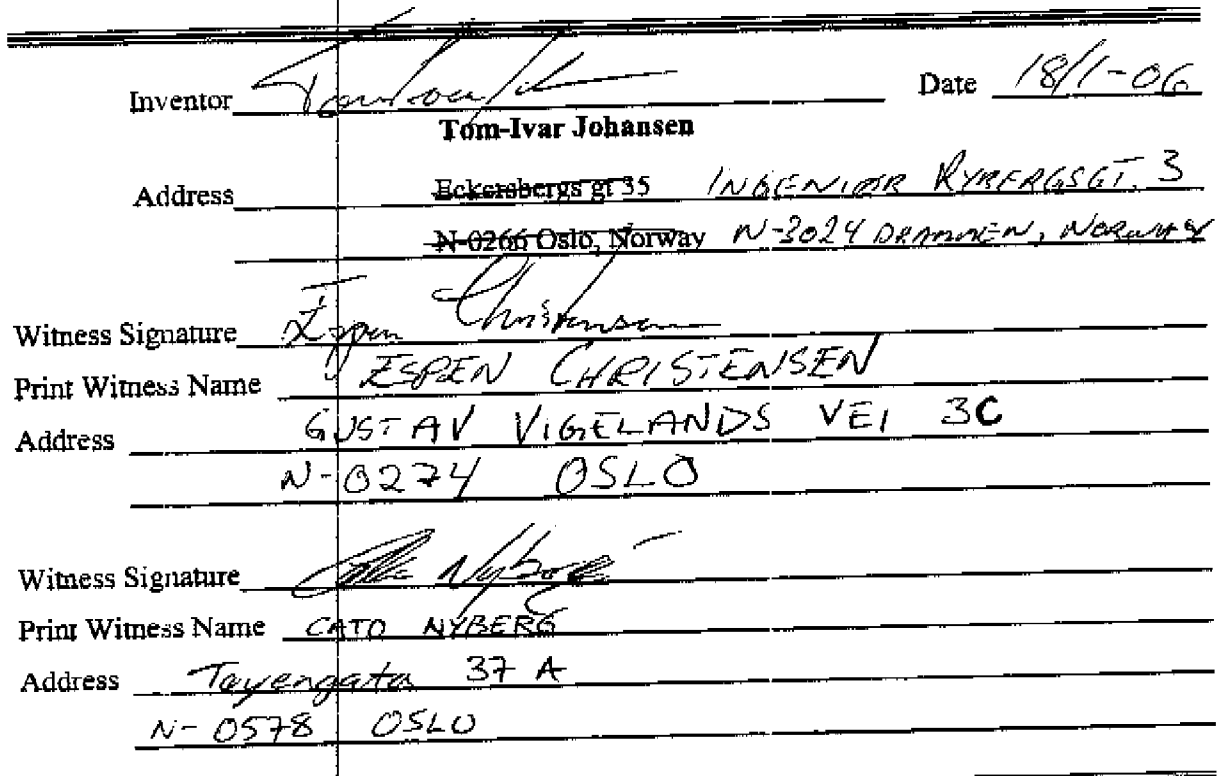 Inventor Date 18/1-06
Tom-Ivar Johansen
Address Eckersbergs gt 35 INGENIØR RYBERGSGT. 3
N-0266 Oslo, Norway N-3024 DRAMMEN, NORWAY
Witness Signature Espen Christensen
Print Witness Name ESPEN CHRISTENSEN
Address GUSTAV VIGELANDS VEI 3C
N-0274 OSLO
Witness Signature Cato Nyberg
Print Witness Name CATO NYBERG
Address Tøyengata 37 A
N-0578 OSLO